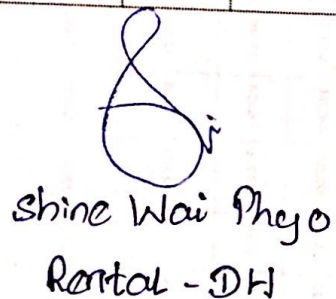 Shine Wai Phyo
Rental - DH